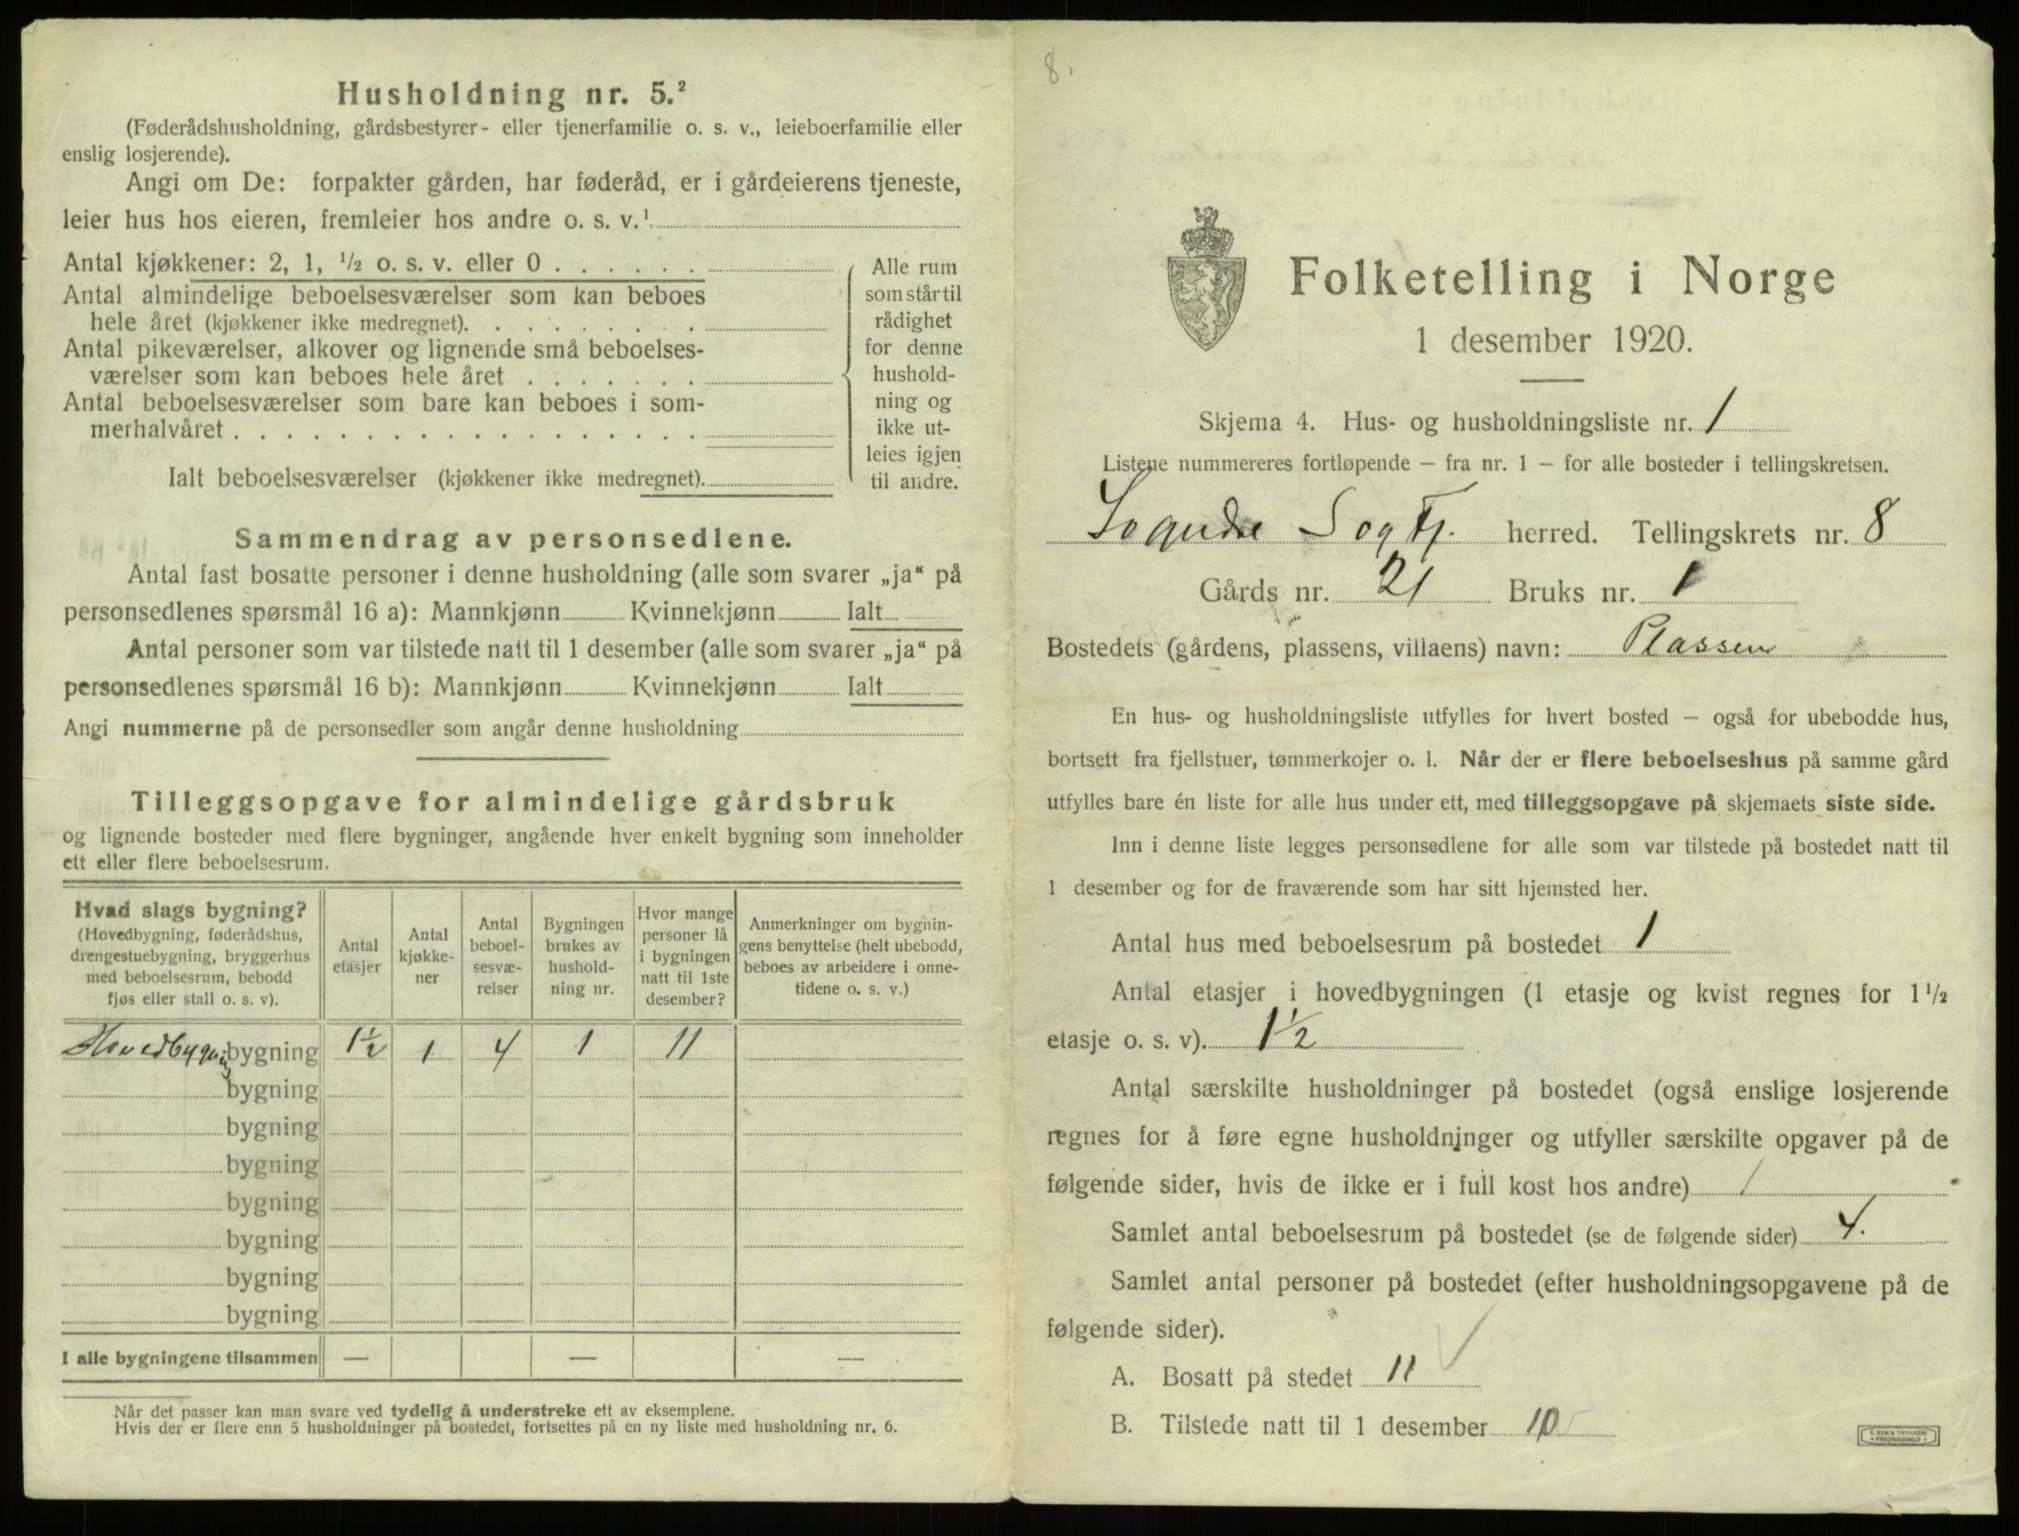 Husholdning nr. 5.²
(Føderådshusholdning, gårdsbestyrer- eller tjenerfamilie o. s. v., leieboerfamilie eller
enslig losjerende).
Angi om De: forpakter gården, har føderåd, er i gårdeierens tjeneste,
leier hus hos eieren, fremleier hos andre o. s. v.¹
Antal kjøkkener: 2, 1, ½ o. s. v. eller 0 . . . . . .
Antal almindelige beboelsesværelser som kan beboes
hele året (kjøkkener ikke medregnet). . . . . . . . .
Antal pikeværelser, alkover og lignende små beboelses-
værelser som kan beboes hele året . . . . . . .
Antal beboelsesværelser som bare kan beboes i som-
merhalvåret . . . . . . . . . . . . . . . . . .
Ialt beboelsesværelser (kjøkkener ikke medregnet).
Alle rum
som står til
rådighet
for denne
hushold-
ning og
ikke ut-
leies igjen
til andre.
Sammendrag av personsedlene.
Antal fast bosatte personer i denne husholdning (alle som svarer „ja“ på
personsedlenes spørsmål 16 a): Mannkjønn Kvinnekjønn Ialt
Antal personer som var tilstede natt til 1 desember (alle som svarer „ja“ på
personsedlenes spørsmål 16 b): Mannkjønn Kvinnekjønn Ialt
Angi nummerne på de personsedler som angår denne husholdning
Tilleggsopgave for almindelige gårdsbruk
og lignende bosteder med flere bygninger, angående hver enkelt bygning som inneholder
ett eller flere beboelsesrum.
Hvad slags bygning?
(Hovedbygning, føderådshus,
drengestuebygning, bryggerhus
med beboelsesrum, bebodd
fjøs eller stall o. s. v).
Antal
etasjer
Antal
kjøkke-
ner
Antal
beboel-
sesvæ-
relser
Bygningen
brukes av
hushold-
ning nr.
Hvor mange
personer lå
i bygningen
natt til 1ste
desember?
Anmerkninger om bygnin-
gens benyttelse (helt ubebodd,
beboes av arbeidere i onne-
tidene o. s. v.)
Hovedbygning bygning 1½ 1 4 1 11
bygning
bygning
bygning
bygning
bygning
bygning
bygning
I alle bygningene tilsammen — — —
Når det passer kan man svare ved tydelig å understreke ett av eksemplene.
Hvis der er flere enn 5 husholdninger på bostedet, fortsettes på en ny liste med husholdning nr. 6.
8.
Folketelling i Norge
1 desember 1920.
Skjema 4. Hus- og husholdningsliste nr. 1
Listene nummereres fortløpende – fra nr. 1 – for alle bosteder i tellingskretsen.
Sogndal Sog Fj. herred. Tellingskrets nr. 8
Gårds nr. 21 Bruks nr. 1
Bostedets (gårdens, plassens, villaens) navn: Plassen
En hus- og husholdningsliste utfylles for hvert bosted – også for ubebodde hus,
bortsett fra fjellstuer, tømmerkojer o. l. Når der er flere beboelseshus på samme gård
utfylles bare én liste for alle hus under ett, med tilleggsopgave på skjemaets siste side.
Inn i denne liste legges personsedlene for alle som var tilstede på bostedet natt til
1 desember og for de fraværende som har sitt hjemsted her.
Antal hus med beboelsesrum på bostedet 1
Antal etasjer i hovedbygningen (1 etasje og kvist regnes for 1½
etasje o. s. v). 1½
Antal særskilte husholdninger på bostedet (også enslige losjerende
regnes for å føre egne husholdninger og utfyller særskilte opgaver på de
følgende sider, hvis de ikke er i full kost hos andre) 1
Samlet antal beboelsesrum på bostedet (se de følgende sider) 4.
Samlet antal personer på bostedet (efter husholdningsopgavene på de
følgende sider).
A. Bosatt på stedet 11
B. Tilstede natt til 1 desember 10